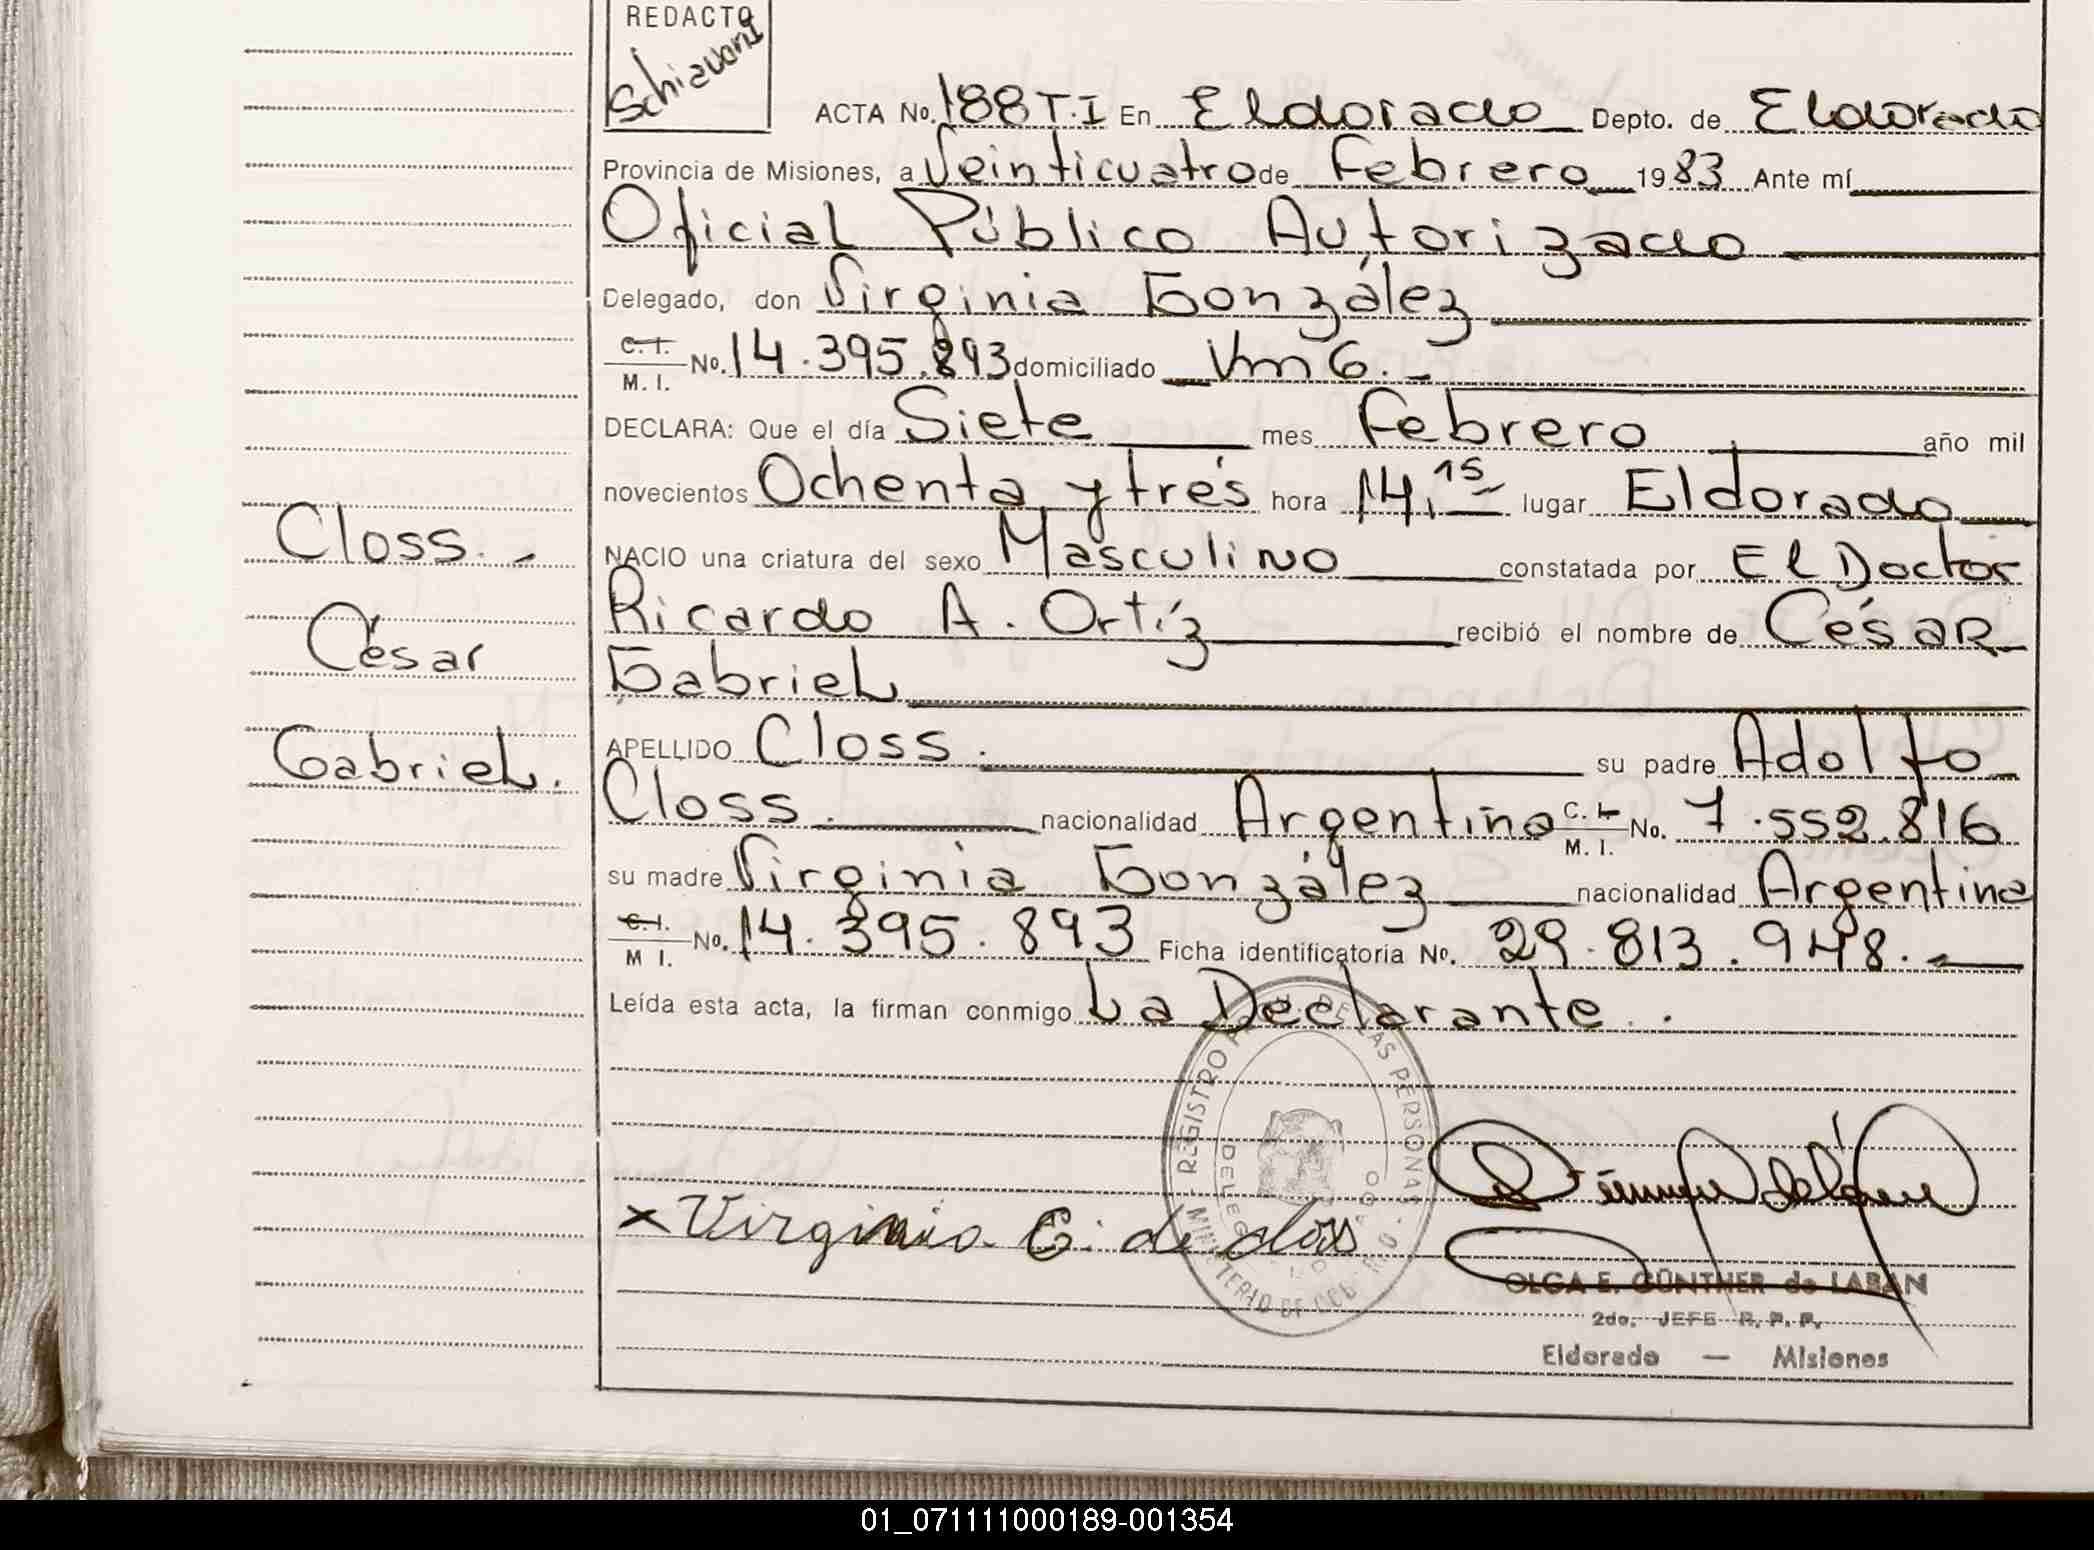 REDACTO
Schiavoni
ACTA No. 188 T.I En Eldorado Depto. de Eldorado
Provincia de Misiones, a Veinticuatro de Febrero 1983 Ante mí
Oficial Público Autorizado
Delegado, don Virginia González
C.I. M.I. No. 14.395.893 domiciliado Km 6.-
DECLARA: Que el día Siete mes Febrero año mil
novecientos Ochenta y trés hora 14,15 lugar Eldorado
Closs.-
NACIO una criatura del sexo Masculino constatada por El Doctor
César
Ricardo A. Ortíz recibió el nombre de César
Gabriel
Gabriel.
APELLIDO Closs. su padre Adolfo
Closs. nacionalidad Argentina C.I. M.I. No. 7.552.816
su madre Virginia González nacionalidad Argentina
C.I. M.I. No. 14.395.893 Ficha identificatoria No. 29.813.948.-
Leída esta acta, la firman conmigo La Declarante..
REGISTRO DE LAS PERSONAS
MINISTERIO DE GOB.
x Virginia G. de Closs
OLGA E. GÜNTHER de LABAN
2do. JEFE R. P. P.
Eldorado — Misiones
01_071111000189-001354